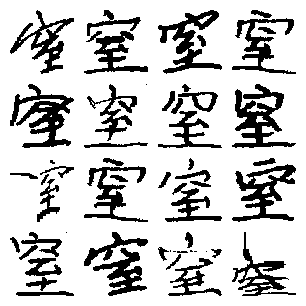 窒窒窒窒
窒窒窒窒
窒窒窒窒
窒窒窒窒